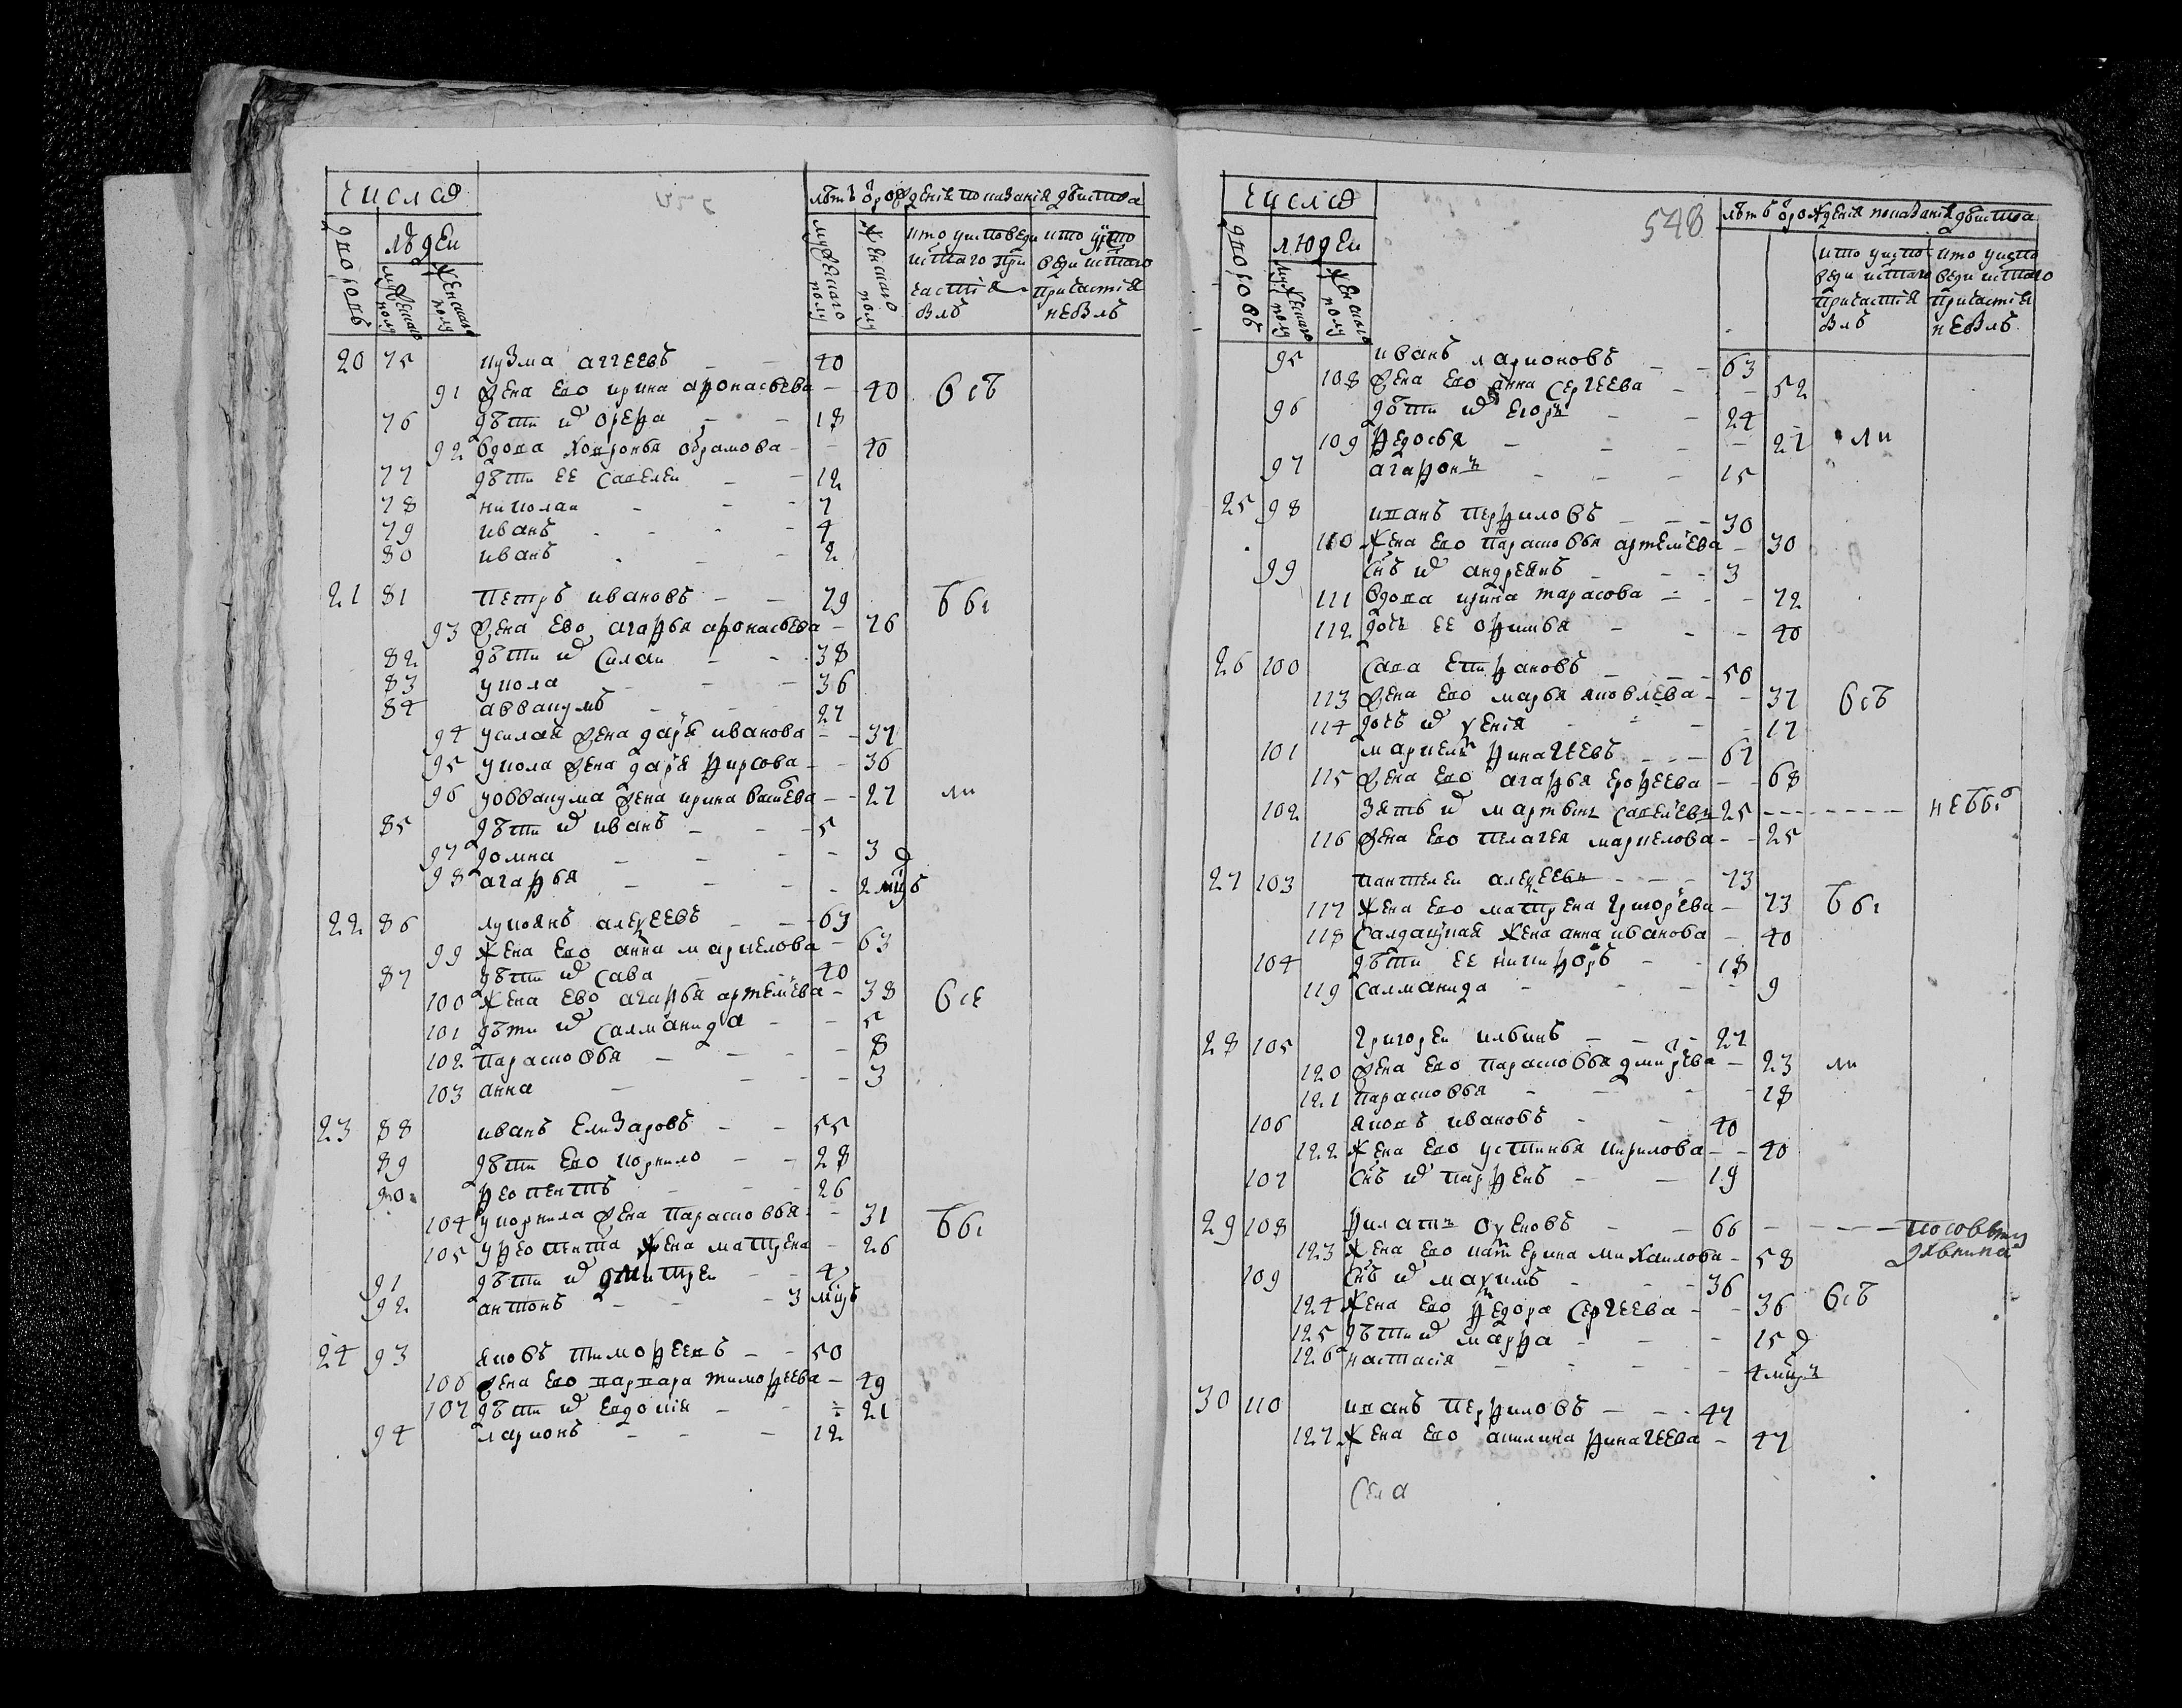 числа
лѣтъ ѿ рожденія показанія двиства
дворовъ
людеи
мужеска полу
женскаго полу
мужескаго полу
женскаго полу
кто у исповеди и стаго причастия былъ
кто у исповеди и стаго причастія не былъ
20 75 кузма аггеевъ - 40
91 жена ево ирина афонасьева - 40 всѣ
76 дѣти их ерефа - - 18
92 вдова ховронья обрамова - - 40
77 дѣти ее савелеи - - 12
78 николаи - - - 7
79 иванъ - - - 4
80 иванъ - - 2
21 81 петръ ивановъ - - 79 бы
93 жена ево агафья афонасьева - 76
82 дѣти их силаи - - 38
83 укола - - 36
84 аввакумъ - - 27
94 усилая жена даря иванова - - 37
95 укола жена даря фирсова - - 36
96 уоввакума жена ирина васиева - - 27 ли
85 дѣти их иванъ - - - 5
97 домна - - - - 3
98 агафья - - - - 2 мцъ
22 86 лукоянъ алеѯеевъ - - 63
99 жена ево анна маркелова - 63
87 дѣти их сава - - 40
100 жена ево агафья артемиева - 38 все
101 дѣти их салманида - - 5
102 парасковья - - - - 8
103 анна - - - - 3
23 88 иванъ елизаровъ - - 55
89 дѣти ево корнило - - 28
90 феопентъ - - - 26
104 укорнила жена парасковья - - 31 бы
105 уфеопента жена матрена - 26
91 дѣти их дмитреи - - 4
92 антонъ - - - 3 мцъ
24 93 яковъ тимофеевъ - - 50
106 жена ево варвара тимофеева - 49
107 дѣти их евдокия - - - 21
94 ларионъ - - - 12
548
числа
лѣтъ ѿ рожденія показанія двиства
дворовъ
людеи
мужескаго полу
женскаго полу
кто у исповеди и стаго причастія былъ
кто у исповеди и стаго причастія не былъ
95 иванъ ларионовъ - - 63
108 жена ево анна сергеева - - 52
96 дѣти их егоръ - - 24
109 федосья - - - - 27 ли
97 агафонъ - - - 15
25 98 иванъ перфиловъ - - - 30
110 жена ево парасковья артемиева - 30
99 снъ их андреянъ - - - 3
111 вдова ирина тарасова - - - 72
112 дочь ее офимья - - - 40
26 100 сава етифановъ - - - 50
113 жена ево марья яковлева - - 37 всѣ
114 дочь их ѯения - - - - 17
101 маркелъ финагеевъ - - - 67
115 жена ево агафья ерофеева - - 68
102 зять их мартынъ савелиевъ 25 - - - - - - не бы
116 жена ево пелагея маркелова - - 25
27 103 пантелеи алеѯеевъ - - - 73
117 жена ево матрена григорева - 73 бы
118 салдацкая жена анна иванова - 40
104 дѣти ее никифоръ - - 18
119 салманида - - - - 9
28 105 григореи ильинъ - - - 27
120 жена ево парасковья дмитрева - 23 ли
121 парасковья - - - - 18
106 яковъ ивановъ - - 40
122 жена ево устинья кирилова - - 40
107 снъ их парфенъ - - 19
29 108 филатъ оѯеновъ - - 66 - - - - по совѣту дховника
123 жена ево катерина михаилова - 58
109 снъ их маѯимъ - - - 36
124 жена ево федора сергеева - - 36 всѣ
125 дѣти их марфа - - - 15
126 настасия - - - - 4 мцъ
30 110 иванъ перфиловъ - - - 47
127 жена ево акилина финагеева - 47
села